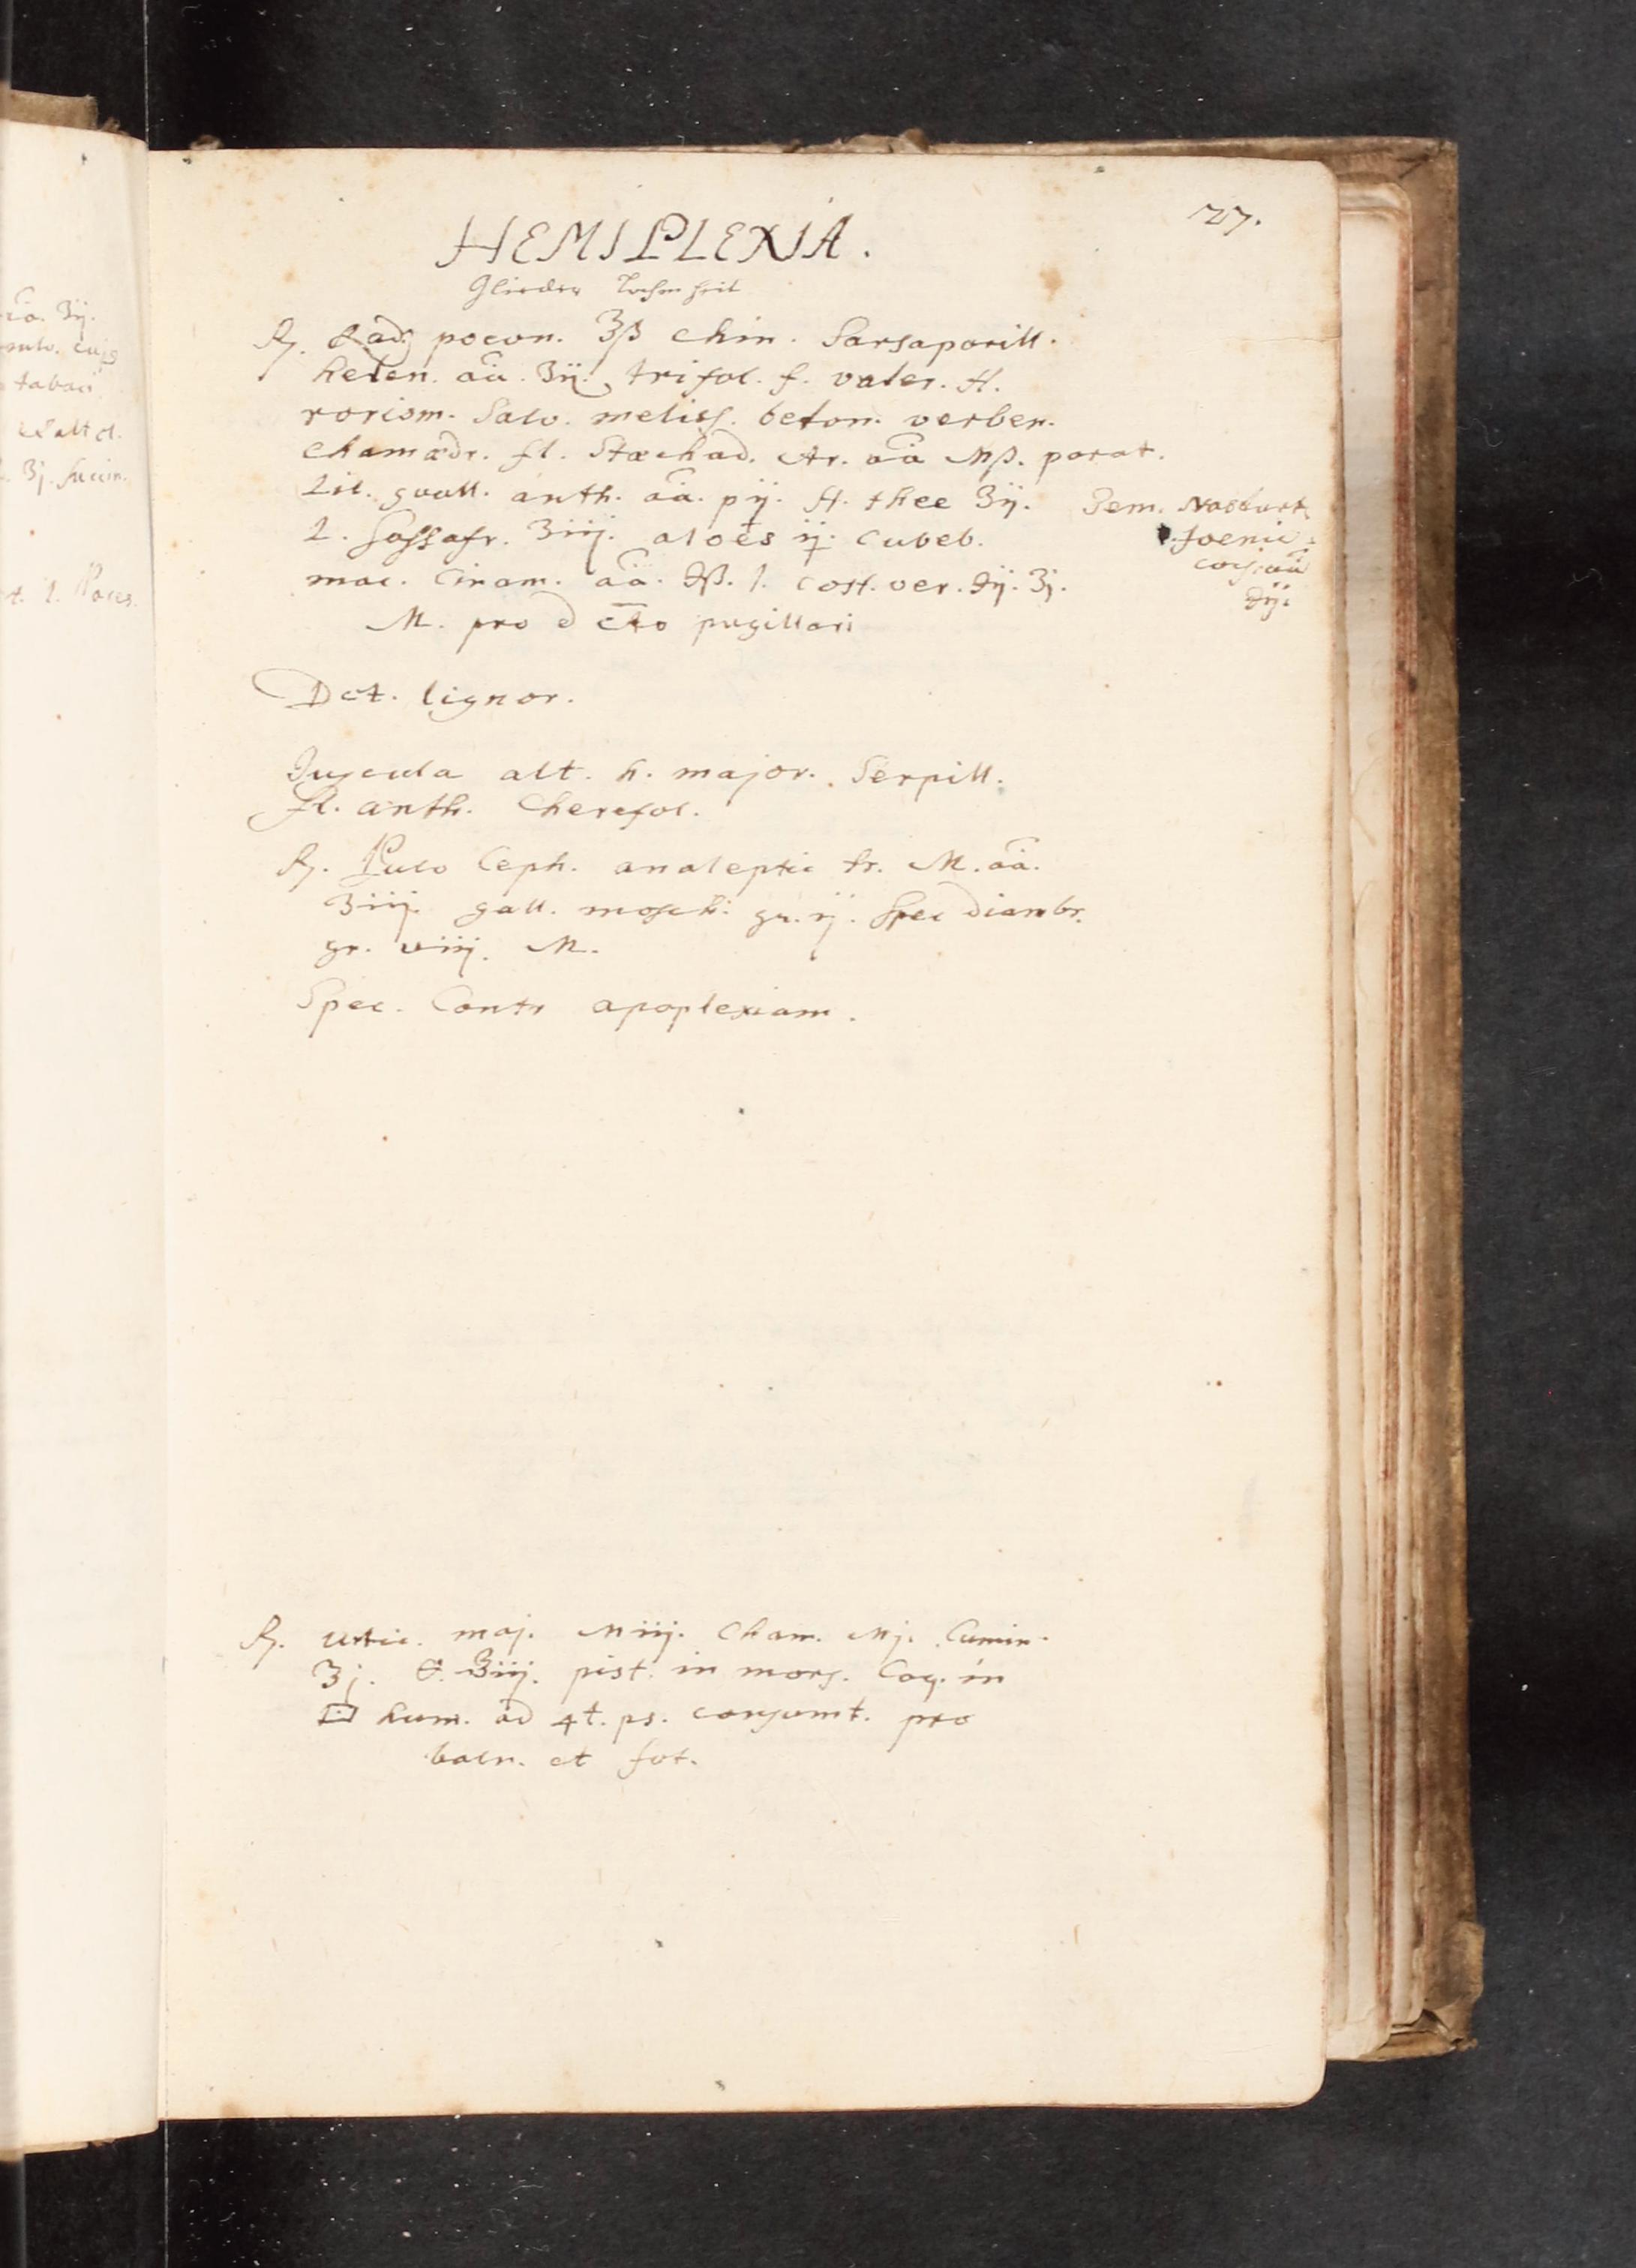 27.
HEMIPLEXIA.
Glieder Lahmheit
℞. Rad. poeon. ʒß chin. Sarsaparill.
helen. aa. ʒij. trifol. f. valer. H.
rorism. Salv. meliss. beton. verben.
Chamædr. fl. Stæchad. Ar. aa Mß. parat.
Lil. vall. anth. aa. pij. H. thee ʒij.
Sem. Nasturt.
foenic.
aa
℈ij.
L. Sassafr. ʒiij. aloës ij. cubeb.
mac. Cinam. aa. ℈ß. l. cost. ver. ℈ij. ʒj.
M. pro dcto pugillari
Dct. lignor.
Juscula alt. h. major. Serpill.
fl. anth. Cherefol.
℞. Pulv Ceph. analeptic tr. M. aa.
ʒiij. gall. mosch. gr. ij. Spec diambr.
gr. viij. M.
Spec. Contr apoplexiam.
℞. urtic. maj. Miij. Cham. Mj. Cumin.
ʒj. ʒiij. pist. in mors. Coq. in
hum. ad 4t. ps. consumt. pro
baln. et fot.
aa. ʒij.
pulv. cujs
tabaci
ʒj. succin.